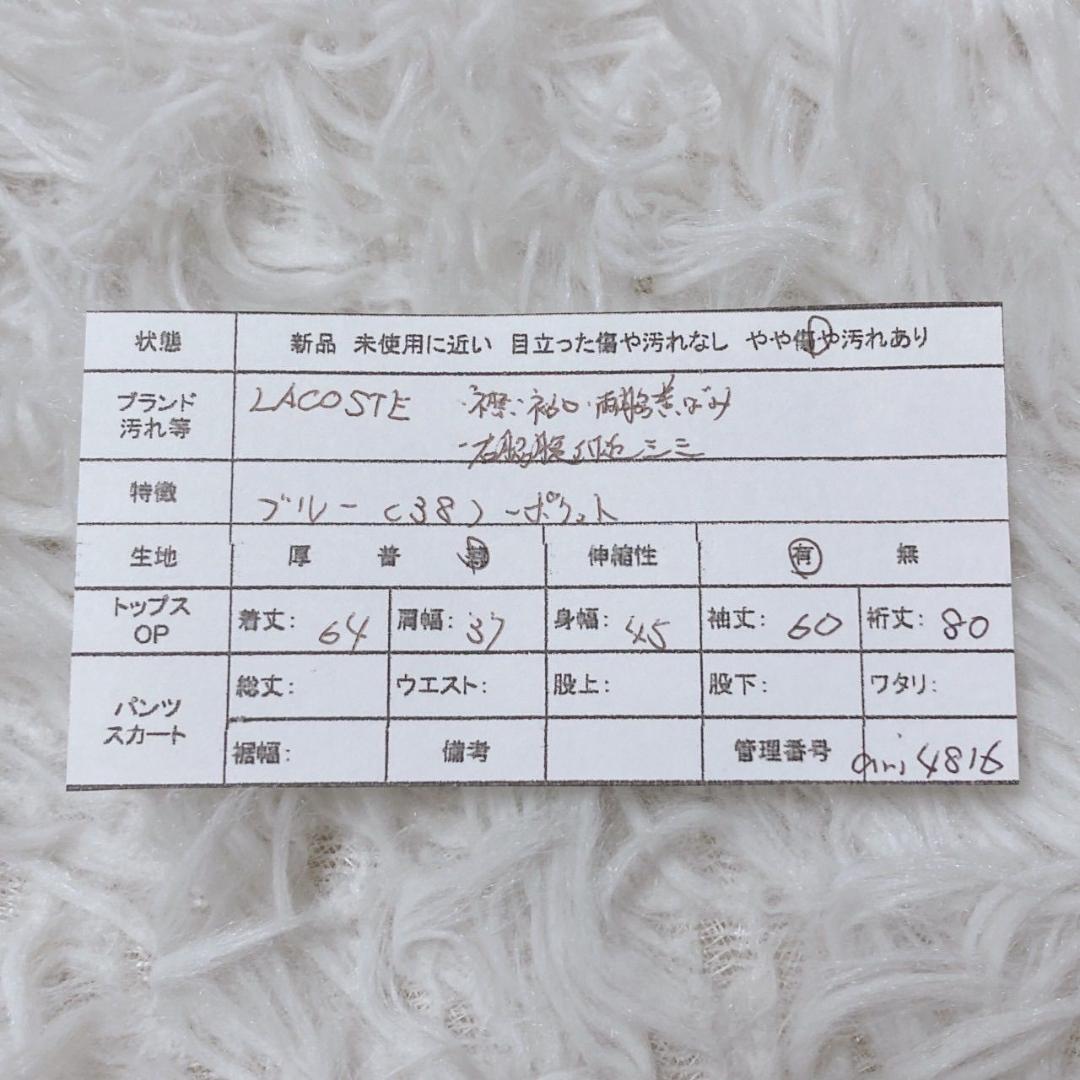 状態 新品 未使用に近い 目立った傷や汚れなし やや傷や汚れあり
ブランド 汚れ等 LACOSTE ・襟・袖口・両脇黄ばみ
・右脇腹付近シミ
特徴 ブルー(38) ポケット
生地 厚 普 薄 伸縮性 有 無
トップス OP 着丈: 64 肩幅: 37 身幅: 45 袖丈: 60 裄丈: 80
パンツ スカート 総丈: ウエスト: 股上: 股下: ワタリ:
裾幅: 備考 管理番号 4816